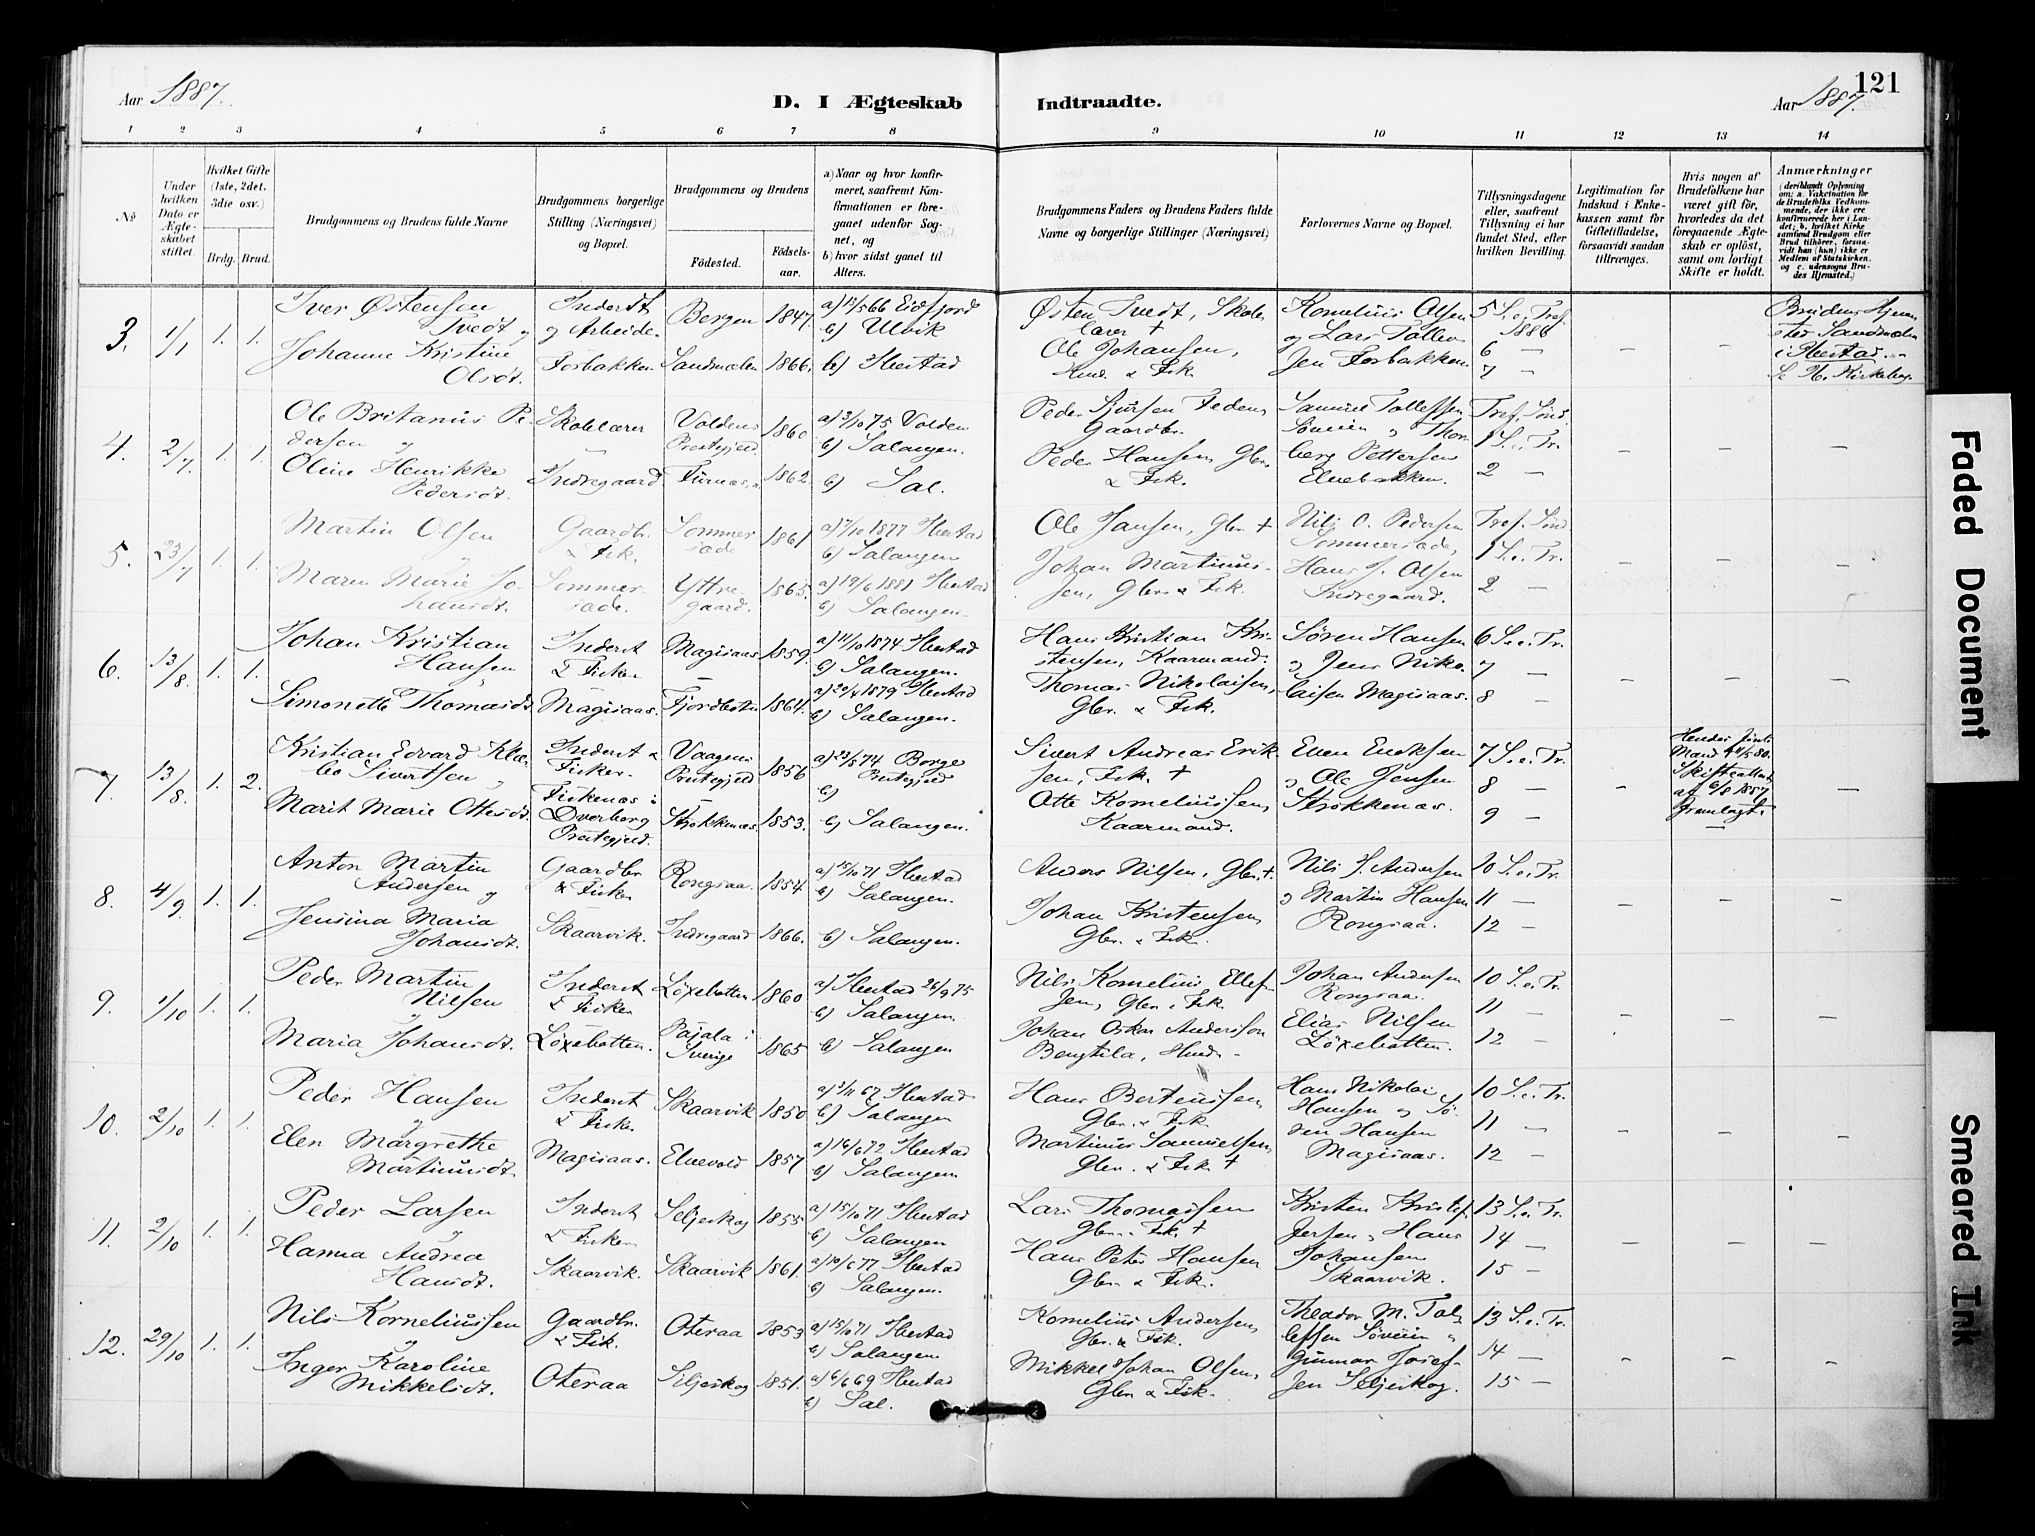 Aar 1887.
D. I Ægteskab
Indtraadte.
Aar 1887.
121
1 2 3 4 5 6 7 8 9 10 11 12 13 14
No
Under hvilken Dato er Ægteskabet stiftet.
Hvilket Gifte (1ste, 2det, 3die osv.)
Brdg. Brud.
Brudgommens og Brudens fulde Navne
Brudgommens borgerlige Stilling (Næringsvei) og Bopæl.
Brudgommens og Brudens
Fødested.
Fødselsaar.
a) Naar og hvor konfirmeret, saafremt Konfirmationen er foregaaet udenfor Sognet, og
b) hvor sidst gaaet til Alters.
Brudgommens Faders og Brudens Faders fulde Navne og borgerlige Stillinger (Næringsvei)
Forlovernes Navne og Bopæl.
Tillysningsdagene eller, saafremt Tillysning ei har fundet Sted, efter hvilken Bevilling.
Legitimation for Indskud i Enkekassen samt for Giftetilladelse, forsaavidt saadan tiltrænges.
Hvis nogen af Brudefolkene har været gift før, hvorledes da det foregaaende Ægteskab er opløst, samt om lovligt Skifte er holdt.
Anmærkninger
3. 1/1 1. 1.
Iver Østensen Tvedt og
Johanne Kristine Olsdt.
Inderst og Arbeide.
Forbakken
Bergen 1847.
Sandmælen 1866.
a) 13/5 66 Eidfjord
b) Ulvik
b) Ibestad
Østen Tvedt, Skolelærer +
Ole Johansen, Hmd. & Fisk.
Kornelius Olsen og Lars Tollevsen Forbakken
5 S. e. Tref. 1886
6 —
7 —
Brudens Hjemsted Sandmælen i Ibestad.
4. 2/7 1. 1.
Ole Britanius Pedersen og
Oline Henrikke Pedersdt.
Skolelærer
Indregaard
Voldens Prestegjeld 1860
Furnæs 1862.
a) 3/10 75 Volden
b) Salangen.
b) Sal.
Gaardbr.
Peder Hansen, Gbr. & Fisk.
Samuel Tollefsen Søveien og Thorberg Pettersen Elvebakken.
Tref. Sønd.
1 S. e. Tr.
2 —
5. 23/7 1. 1.
Martin Olsen og
Maren Marie Johansdt.
Gaardbr. & Fisk.
Sommersæde.
Sommersæde 1861
Yttregaard. 1865.
a) 7/10 1877 Ibestad
b) Salangen
a) 19/6 1881 Ibestad
b) Salangen.
Ole Jansen, Gbr. +
Johan Martinussen, Gbr. & Fisk.
Nils O. Pedersen Sommersæde,
Hans J. Olsen Indregaard.
Tref. Sønd.
1 S. e. Tr.
2 —
6. 13/8. 1. 1.
Johan Kristian Hansen og
Simonette Thomasdt.
Inderst & Fisker
Magisaas.
Magisaas 1859.
Fjordbotn 1864.
a) 11/10 1874 Ibestad
b) Salangen.
a) 1879 Ibestad
b) Salangen.
Hans Kristian Kristensen, Kaarmand.
Thomas Nikolaisen, Gbr. & Fisk.
Søren Hansen og Jens Nikolaisen Magisaas.
6 S. e. Tr.
7 —
8 —
7. 13/8. 1. 2.
Kristian Edvard Sivertsen og
Marit Marie Ottesdt.
Inderst & Fisker.
Fiskenæs i Dverberg Prestegjeld.
Vaagens Prestegjeld 1856
Strokkenæs. 1853.
a) 74 Borge Prestegjeld
b)
b) Salangen.
Sivert Andreas Eriksen, Fisk. +
Otto Korneliussen, Kaarmand.
Even Eriksen og Ole Jensen Strokkenæs.
7 S. e. Tr.
8 —
9 —
Hendes første Mand + 80. Skifteattest af 6/8 1887 fremlagt.
8. 4/9 1. 1.
Anton Martin Andersen og
Jensina Maria Johansdt.
Gaardbr. & Fisker
Skaarvik.
Rongsaa. 1854
Indregaard 1866.
a) 15/10 71 Ibestad
b) Salangen.
b) Salangen.
Anders Nilsen, Gbr. +.
Johan Kristensen, Gbr. & Fisk.
Nils J. Andersen og Martin Hansen Rongsaa.
10 S. e. Tr.
11 —
12 —
9. 1/10 1. 1.
Peder Martin Nilsen og
Maria Johansdt.
Inderst & Fisker
Løxebotten.
Løxebotten 1860
Pajala i Sverige 1865
a) Ibestad 26/9 75
b) Salangen.
b) Salangen
Nils Kornelius Ellefsen, Gbr. & Fisk.
Johan Oskar Andersson Bengtila, Hmd.
Johan Andersen Rongsaa.
Elias Nilsen Løxebotten.
10 S. e. Tr.
11 —
12 —
10. 2/10 1. 1.
Peder Hansen og
Elen Margrethe Martinusdt.
Inderst & Fisker
Magisaas.
Skaarvik 1850
Elvevold 1857
a) 3/11 67 Ibestad
b) Salangen
a) 16/6 72 Ibestad
b) Salangen.
Hans Berteussen, Gbr. & Fisk.
Martinus Samuelsen, Gbr. & Fisk +
Hans Nikolai Hansen og Søren Hansen Magisaas.
10 S. e. Tr.
11 —
12 —
11. 2/10 1. 1.
Peder Larsen og
Hanna Andrea Hansdt.
Inderst & Fisker
Skaarvik.
Seljeskog 1855
Skaarvik 1861.
a) 15/10 71 Ibestad
b) Salangen
a) 10/6 77 Ibestad
b) Salangen.
Lars Thomassen Gbr. & Fisk. +
Hans Peter Hansen Gbr. & Fisk.
Kristen Kristofersen og Hans Johansen Skaarvik.
13 S. e. Tr.
14 —
15 —
12. 29/10 1. 1.
Nils Korneliussen og
Inger Karoline Mikkelsdt.
Gaardbr. & Fisk.
Oteraa
Oteraa 1853
Siljeskog 1851.
a) 15/10 71 Ibestad
b) Salangen
a) 6/6 69 Ibestad
b) Sal.
Kornelius Andersen, Gbr. & Fisk.
Mikkel Johan Olsen, Gbr. & Fisk.
Theodor M. Tollefsen Søveien og Gunnar Josefsen Seljeskog.
13 S. e. Tr.
14 —
15 —
Faded Document
Smeared Ink